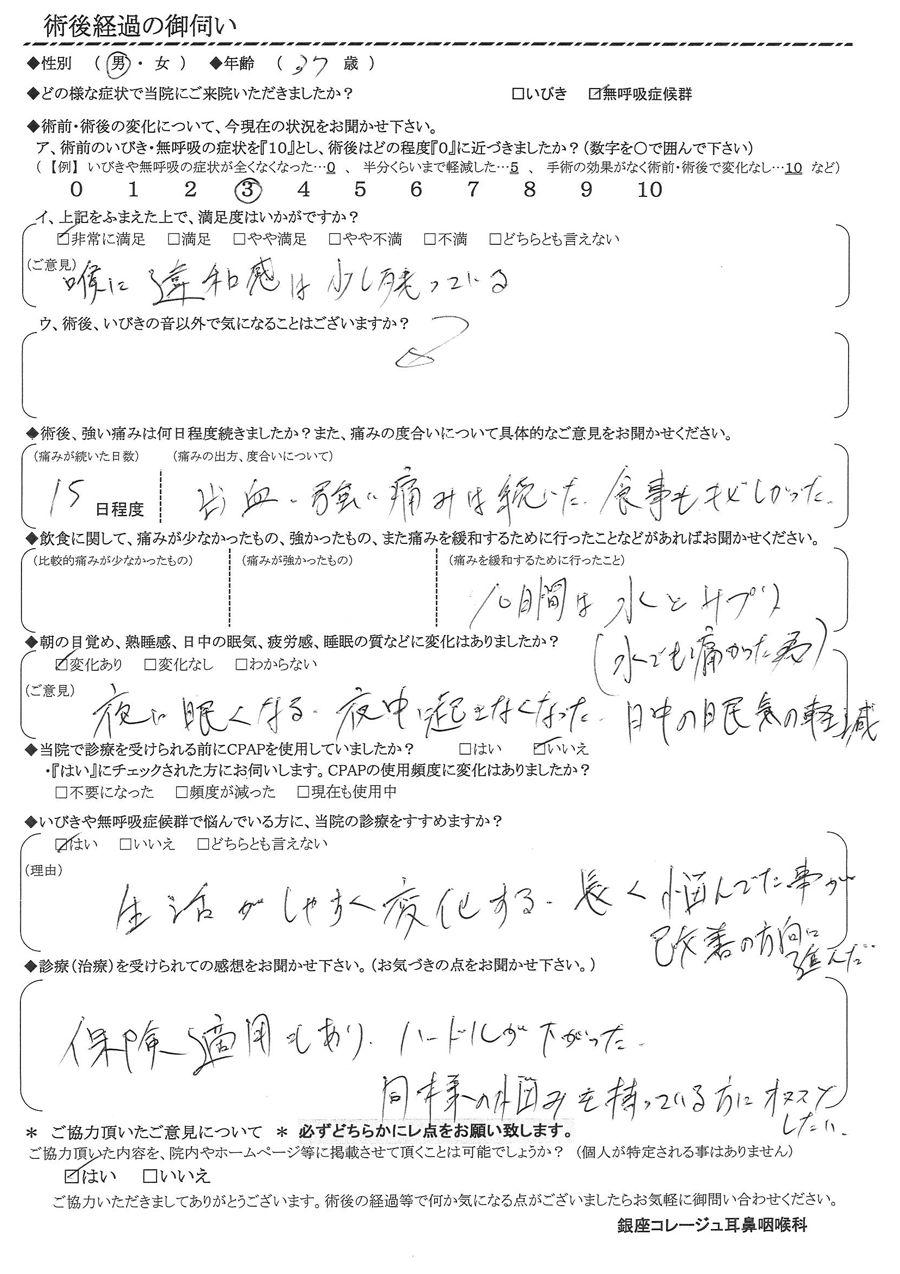 術後経過の御伺い
◆性別 (男・女) ◆年齢 (37歳)
◆どの様な症状で当院にご来院いただきましたか? □いびき ☑無呼吸症候群
◆術前・術後の変化について、今現在の状況をお聞かせ下さい。
ア、術前のいびき・無呼吸の症状を『10』とし、術後はどの程度『0』に近づきましたか?(数字を○で囲んで下さい)
(【例】いびきや無呼吸の症状が全くなくなった…0 、 半分くらいまで軽減した…5 、 手術の効果がなく術前・術後で変化なし…10 など)
0 1 2 ③ 4 5 6 7 8 9 10
イ、上記をふまえた上で、満足度はいかがですか?
☑非常に満足 □満足 □やや満足 □やや不満 □不満 □どちらとも言えない
(ご意見)
喉に違和感は少し残っている
ウ、術後、いびきの音以外で気になることはございますか?
◆術後、強い痛みは何日程度続きましたか?また、痛みの度合いについて具体的なご意見をお聞かせください。
(痛みが続いた日数) (痛みの出方、度合いについて)
15日程度 出血、強い痛みは続いた。食事もキビしかった。
◆飲食に関して、痛みが少なかったもの、強かったもの、また痛みを緩和するために行ったことなどがあればお聞かせください。
(比較的痛みが少なかったもの) (痛みが強かったもの) (痛みを緩和するために行ったこと)
10日間は水とサプリ
(水でも痛かった為)
◆朝の目覚め、熟睡感、日中の眠気、疲労感、睡眠の質などに変化はありましたか?
☑変化あり □変化なし □わからない
(ご意見)
夜に眠くなる。夜中に起きなくなった。日中の眠気の軽減
◆当院で診療を受けられる前にCPAPを使用していましたか? □はい ☑いいえ
・『はい』にチェックされた方にお伺いします。CPAPの使用頻度に変化はありましたか?
□不要になった □頻度が減った □現在も使用中
◆いびきや無呼吸症候群で悩んでいる方に、当院の診療をすすめますか?
☑はい □いいえ □どちらとも言えない
(理由)
生活がしやすく変化する。長く悩んでた事が
改善の方向に
進んだ
◆診療(治療)を受けられての感想をお聞かせ下さい。(お気づきの点をお聞かせ下さい。)
保険適用もあり、ハードルが下がった。
同様の悩みを持っている方にオススメ
したい。
* ご協力頂いたご意見について * 必ずどちらかにレ点をお願い致します。
ご協力頂いた内容を、院内やホームページ等に掲載させて頂くことは可能でしょうか? (個人が特定される事はありません)
☑はい □いいえ
ご協力いただきましてありがとうございます。術後の経過等で何か気になる点がございましたらお気軽に御問い合わせください。
銀座コレージュ耳鼻咽喉科